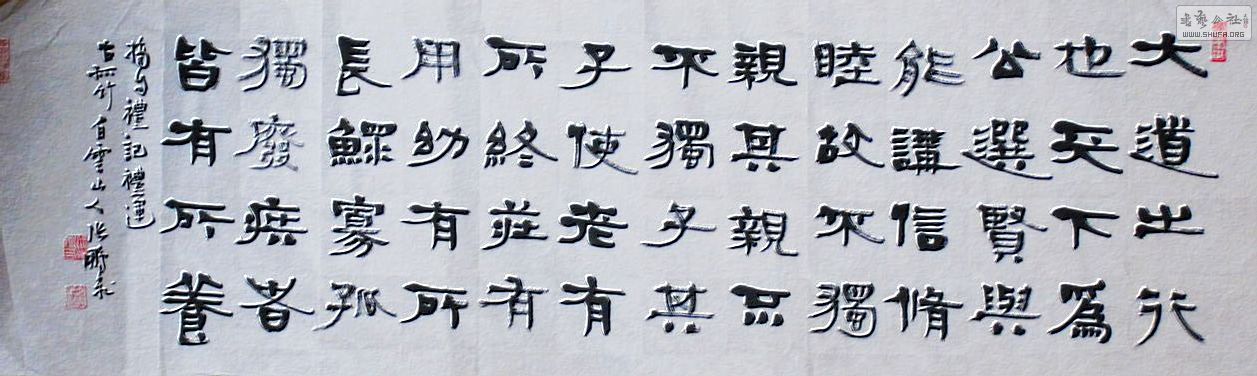 大道之行
也天下為
公選賢與
能講信脩
睦故不獨
親其親不
不獨子其
子使老有
所終莊有
用幼有所
長鰥寡孤
獨廢疾者
皆有所養
摘自禮記禮運
古孤竹白雲山人張鵬飛
書藝公社
WWW.SHUFA.ORG